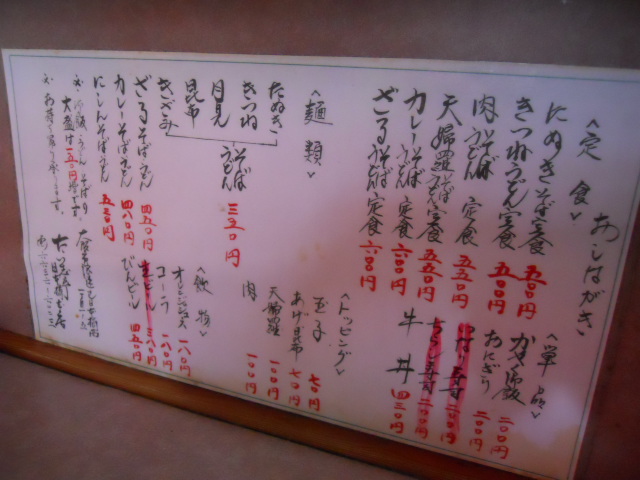 おしながき
〈定食〉
たぬきそば定食 五〇〇円
きつねうどん定食 五〇〇円
肉うどんそば定食 五五〇円
天婦羅うどんそば定食 五五〇円
カレーうどんそば定食 六〇〇円
ざるうどんそば定食 六〇〇円
〈単品〉
かやく御飯 二〇〇円
おにぎり 二〇〇円
寿司 二〇〇円
ちらし寿司 二〇〇円
牛丼 四三〇円
〈麺類〉
たぬき
きつね
月見
昆布
きざみ
うどんそば 三三〇円
ざるそばうどん 四五〇円
カレーそばうどん 四八〇円
にしんそばうどん 五五〇円
〈トッピング〉
玉子 七〇円
あげ・昆布 七〇円
天婦羅 一〇〇円
肉 一〇〇円
〈飲物〉
オレンジジュース 一八〇円
コーラ 一八〇円
生ビール 三八〇円
びんビール 四五〇円
大盛は一五〇円増です。